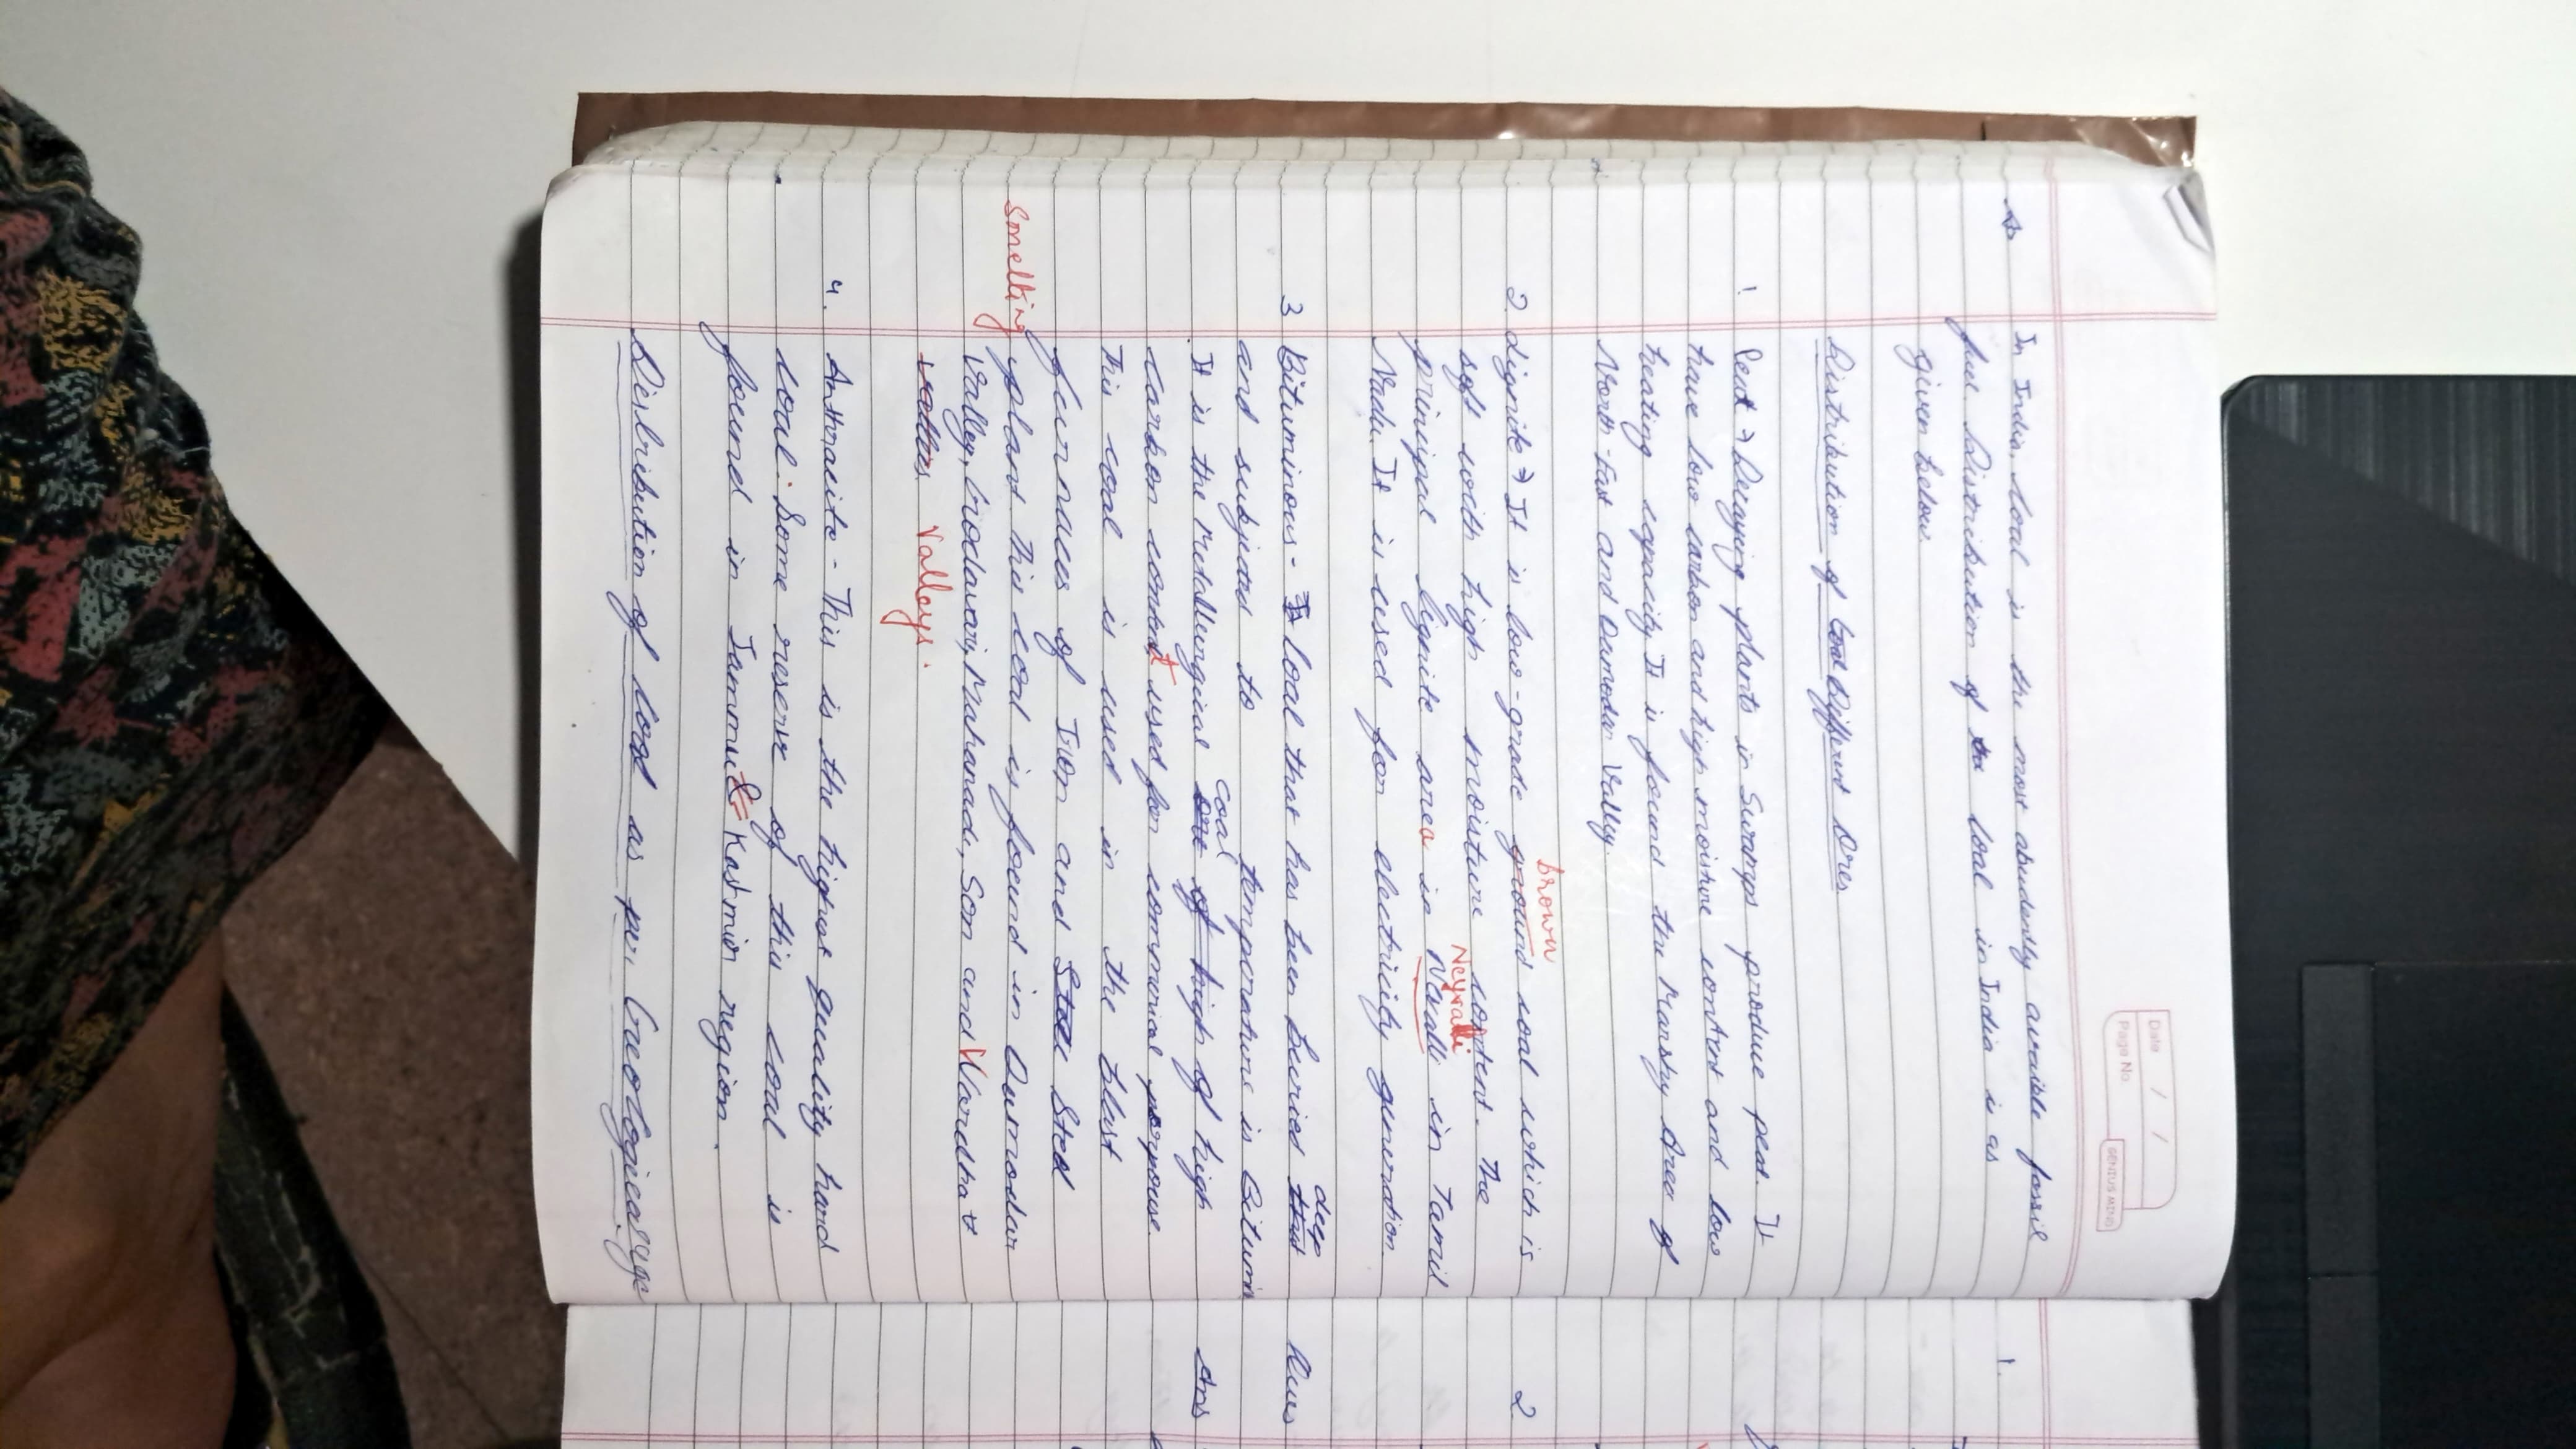 Date / /
Page No
GENIUS MIND
A In India, Coal is the most abundently avaible fossil
fuel. Distribution of the Coal in India is as
given below
Distribution of Coal Different Ores
1. Peat → Decaying plants in Swamps produce peat. It
have low carbon and high moisture content and low
heating capacity It is found the Marshy Area of
North-East and Damodar Valley.
brown
2. Lignite → It is low-grade ground coal which is
soft with high moisture content. The
Neyvali
principal lignite area is Navalli in Tamil
Nadu. It is used for electricity generation.
deep
3 Bituminous - It Coal that has been buried that
and subjected to temperature is Bitumin
coal
It is the Metallurgical ore of high of high
carbon content used for commerical porpouse.
This coal is used in the blast
furnaces of Iron and State Steel
Smelting plant this coal is found in Dumodar
Valley, Godavari, Mahanadi, Son and Wardha &
vallies Valleys.
4. Anthracite - This is the highest quality hard
coal. Some reserve of this coal is
found in Jammu & Kashmir region.
Distribution of Coal as per Geological Age
1.
2
Ques
Ans